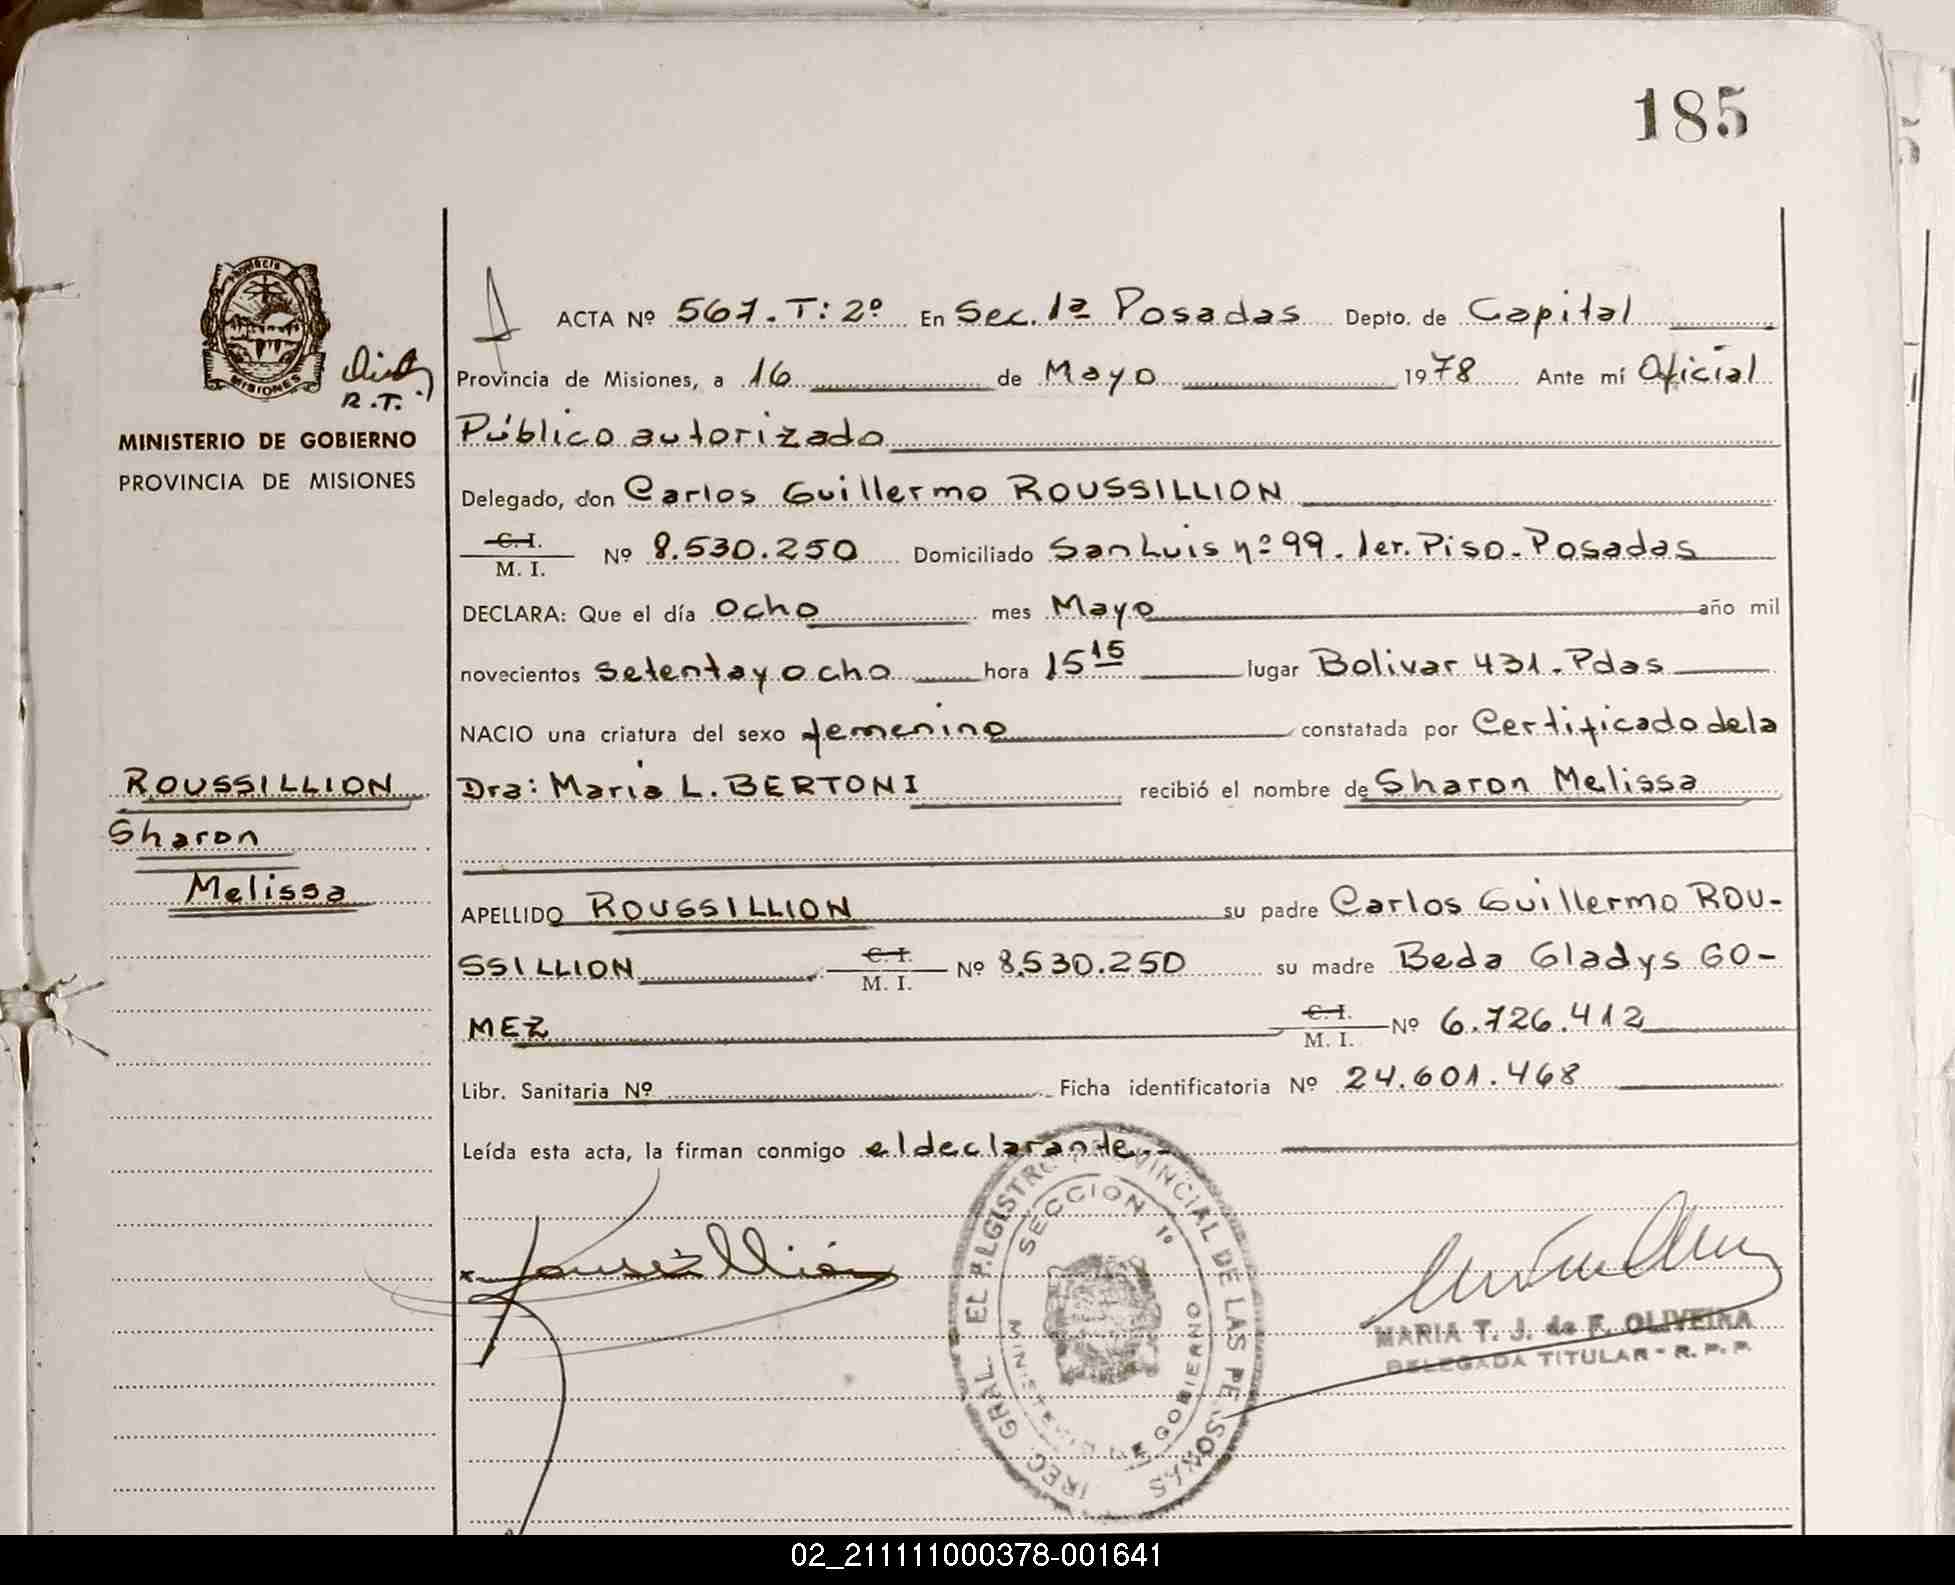 185
Provincia
MISIONES
R.T.
MINISTERIO DE GOBIERNO
PROVINCIA DE MISIONES
ACTA Nº 567. T: 2º En Sec. 1ª Posadas Depto. de Capital
Provincia de Misiones, a 16 de Mayo 1978 Ante mí Oficial
Público autorizado
Delegado, don Carlos Guillermo ROUSSILLION
C. I.
M. I. Nº 8.530.250 Domiciliado San Luis nº 99. 1er. Piso - Posadas
DECLARA: Que el día Ocho mes Mayo año mil
novecientos setenta y ocho hora 15 15 lugar Bolivar 431. Pdas
NACIO una criatura del sexo femenino constatada por Certificado de la
Dra: Maria L. BERTONI recibió el nombre de Sharon Melissa
ROUSSILLION
Sharon
Melissa
APELLIDO ROUSSILLION su padre Carlos Guillermo ROU-
SSILLION C. I. M. I. Nº 8.530.250 su madre Beda Gladys GO-
MEZ C. I. M. I. Nº 6.726.412
Libr. Sanitaria Nº Ficha identificatoria Nº 24.601.468
Leída esta acta, la firman conmigo el declarante.-
x Roussillion
GRAL. EL REGISTRO PROVINCIAL DE LAS PERSONAS
SECCION 1º
MINISTERIO DE GOBIERNO
MARIA T. J. de F. OLIVEIRA
DELEGADA TITULAR - R. P. P.
02_211111000378-001641